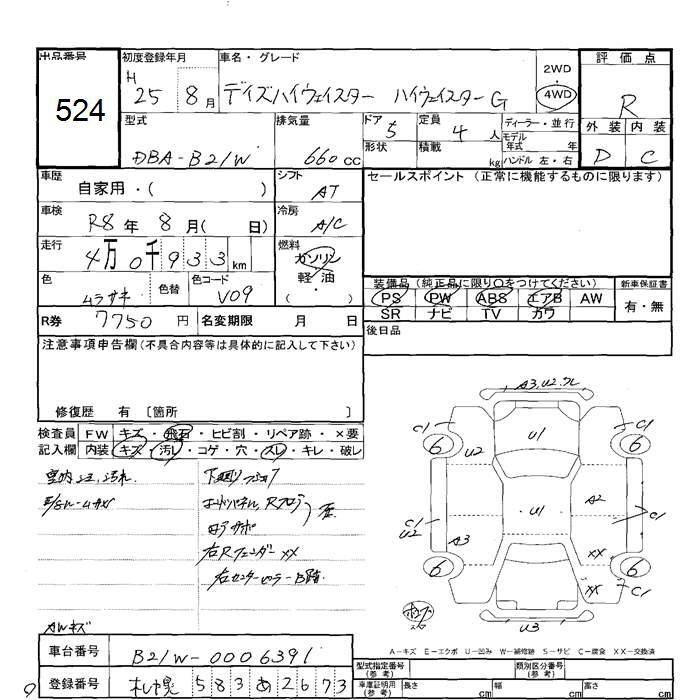 出品番号
524
初度登録年月
H 25 8月
車名・グレード
デイズハイウェイスター ハイウェイスターG
2WD
・
4WD
評価点
R
外装 内装
D C
型式
DBA-B21W
排気量
660cc
ドア
5
形状
定員
4人
積載
kg
ディーラー・並行
モデル
年式 年
ハンドル 左・右
車歴
自家用・( )
シフト
AT
セールスポイント(正常に機能するものに限ります)
車検
R8年 8月( 日)
冷房
A/C
走行
4万0千933km
燃料
ガソリン
軽・油
( ・ )
色
ムラサキ
色替
色コード
V09
装備品(純正品に限り○をつけてください)
PS PW ABS エアB AW
SR ナビ TV カワ
新車保証書
有・無
R券 7750円
名変期限 月 日
後日品
注意事項申告欄(不具合内容等は具体的に記入して下さい)
修復歴 有 〔箇所 〕
検査員
記入欄
FW キズ・飛石・ヒビ割・リペア跡・×要
内装 キズ・汚レ・コゲ・穴・スレ・キレ・破レ
室内 汚れ
右Rフェンダー XX
右センターピラー
AWキズ
A3.U2.ワレ
C1 C1
6 6
U2
U1
U1
A2
C1
U2
A3
C1
XX
6 6
XX
C1
U3
A-キズ E-エクボ U-凹み W-補修跡 S-サビ C-腐食 XX-交換済
車台番号
B21W-0006391
登録番号
札幌 583 あ 2673
型式指定番号
(参考)
類別区分番号
(参考)
車庫証明用
(参考)
長さ cm
幅 cm
高さ cm